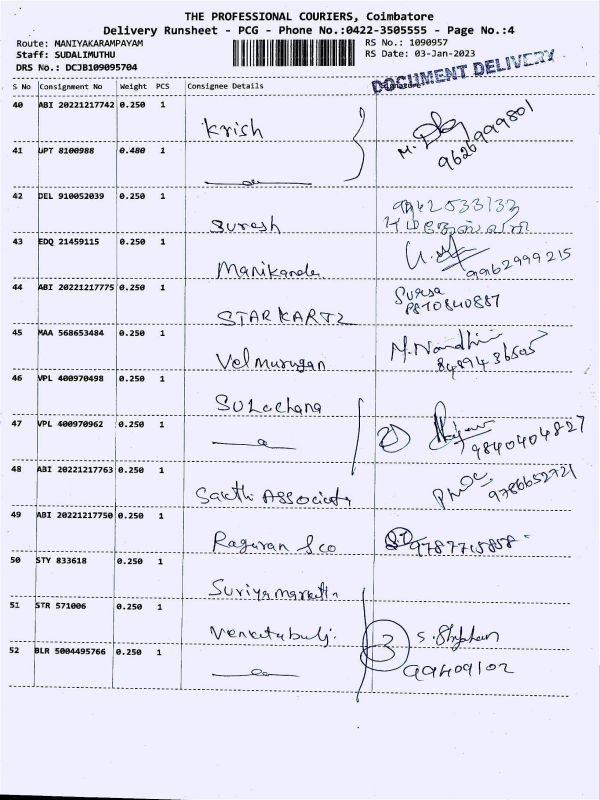 THE PROFESSIONAL COURIERS, Coimbatore
Delivery Runsheet - PCG - Phone No.:0422-3505555 - Page No.:4
Route: MANIYAKARAMPAYAM RS No.: 1090957
Staff: SUDALIMUTHU RS Date: 03-Jan-2023
DRS No.: DCJB109095704
DOCUMENT DELIVERY
S No Consignment No Weight PCS Consignee Details Signature
40 ABI 20221217742 0.250 1 Krish M.
9626999801
41 UPT 8100988 0.480 1
42 DEL 910052039 0.250 1 Suresh 9942533133
43 EDQ 21459115 0.250 1 Manikanda 9962999215
44 ABI 20221217775 0.250 1 STARKARTZ Sursa
8870840887
45 MAA 568653484 0.250 1 Velmurugan M. Nandhini
8489436505
46 VPL 400970498 0.250 1 Sulochana
47 VPL 400970962 0.250 1 2 9840404827
48 ABI 20221217763 0.250 1 Sakthi Associats 9786652721
49 ABI 20221217750 0.250 1 Raguran & co 9787715858
50 STY 833618 0.250 1 Suriya
51 STR 571006 0.250 1 3 S. Stephen
52 BLR 5004495766 0.250 1 99409102